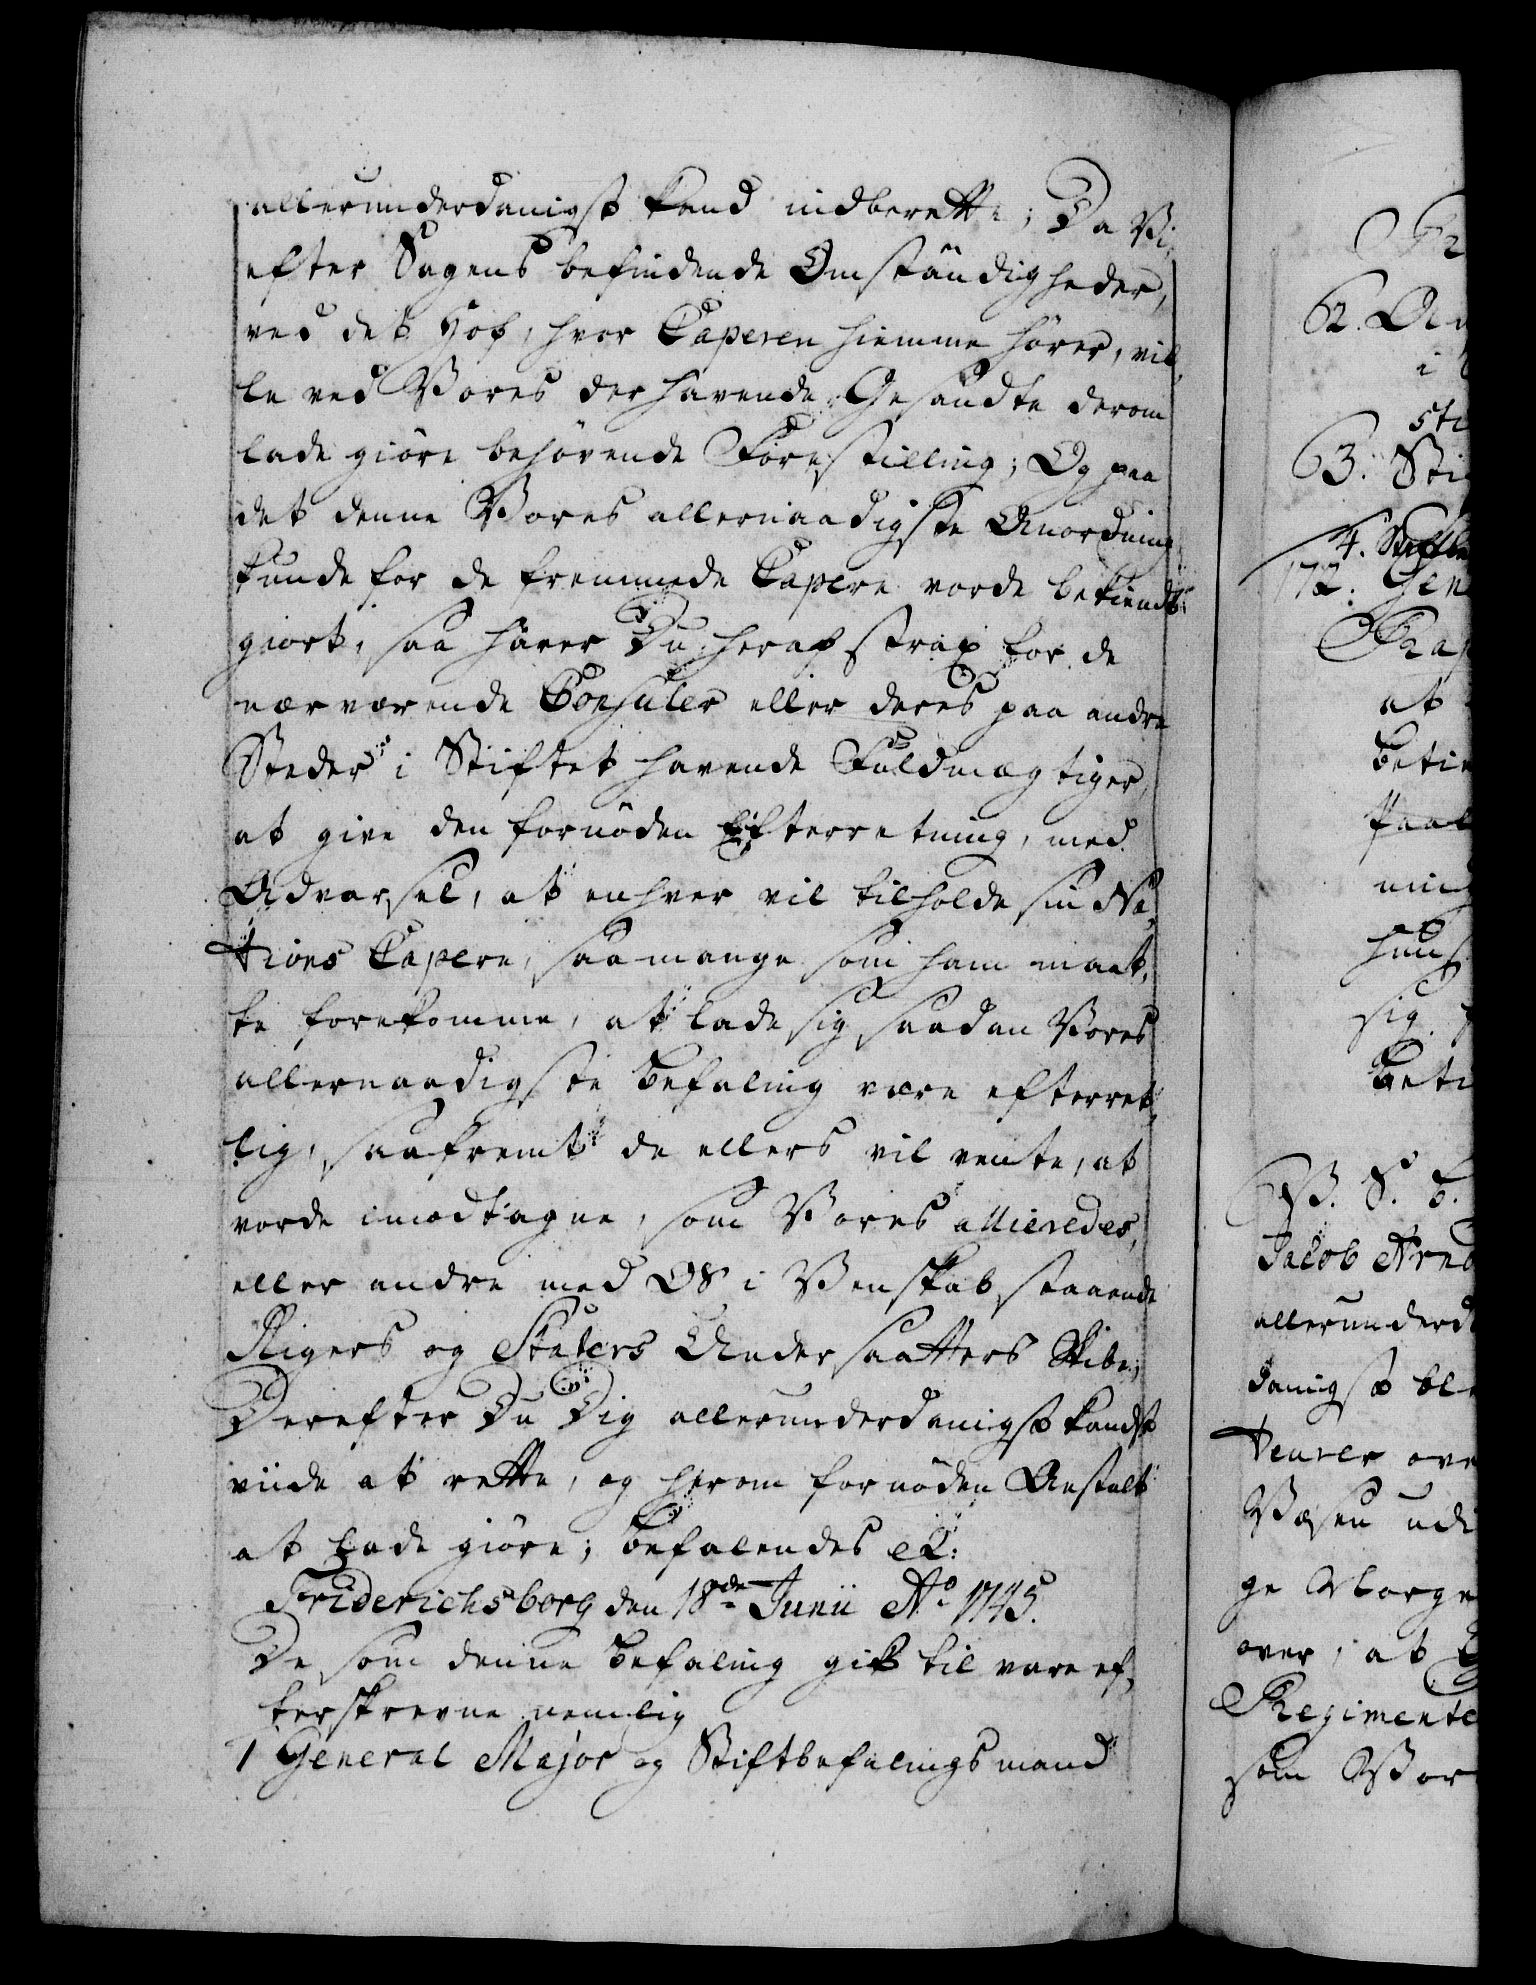 allerunderdanigst kand indberette; Da Vi,
efter Sagens befindende Omständigheder,
ved det Hof, hvor Caperen hiemme hører, vil,
le ved Vores der havende Gesandte derom
lade giøre behøvende Forestilling; Og paa
det denne Vores allernaadigste Anordning
kunde for de fremmede Capere vorde bekiendt,
giort, saa haver Du heraf strax for de
nærværende Consuler eller deres paa andre
Steder i Stiftet havende Fuldmægtiger,
at give den fornøden Efterretning, med
Advarsel, at enhver vil tilholde sin Na,
tions Capere, saa mange som ham maat,
te forekomme, at lade sig saadan Vores
allernaadigste Befaling være efterret,
lig, saafremt de ellers vil vente, at
vorde imodtagne, som Vores allieredes,
eller andre med OS i Venskab staaende
Rigers og Staters Undersaatters Skibe;
Derefter Du Dig allerunderdanigst kandst
viide at rette, og herom fornøden Anstalt
at lade giøre; Befalendes etc:
Friderichsborg den 18de Junii Ao 1745.
De som denne Befaling gik til vare ef,
terskrevne nemlig
1 General Major og Stiftbefalingsmand
62.
i
63. Sti
4.
172. Gen
at
Betie
ning
sig
Beti
V. S. B.
Jacob Arn
allerunderd
danigst
ove
ud
ge
over, at
Regimente
som Vor